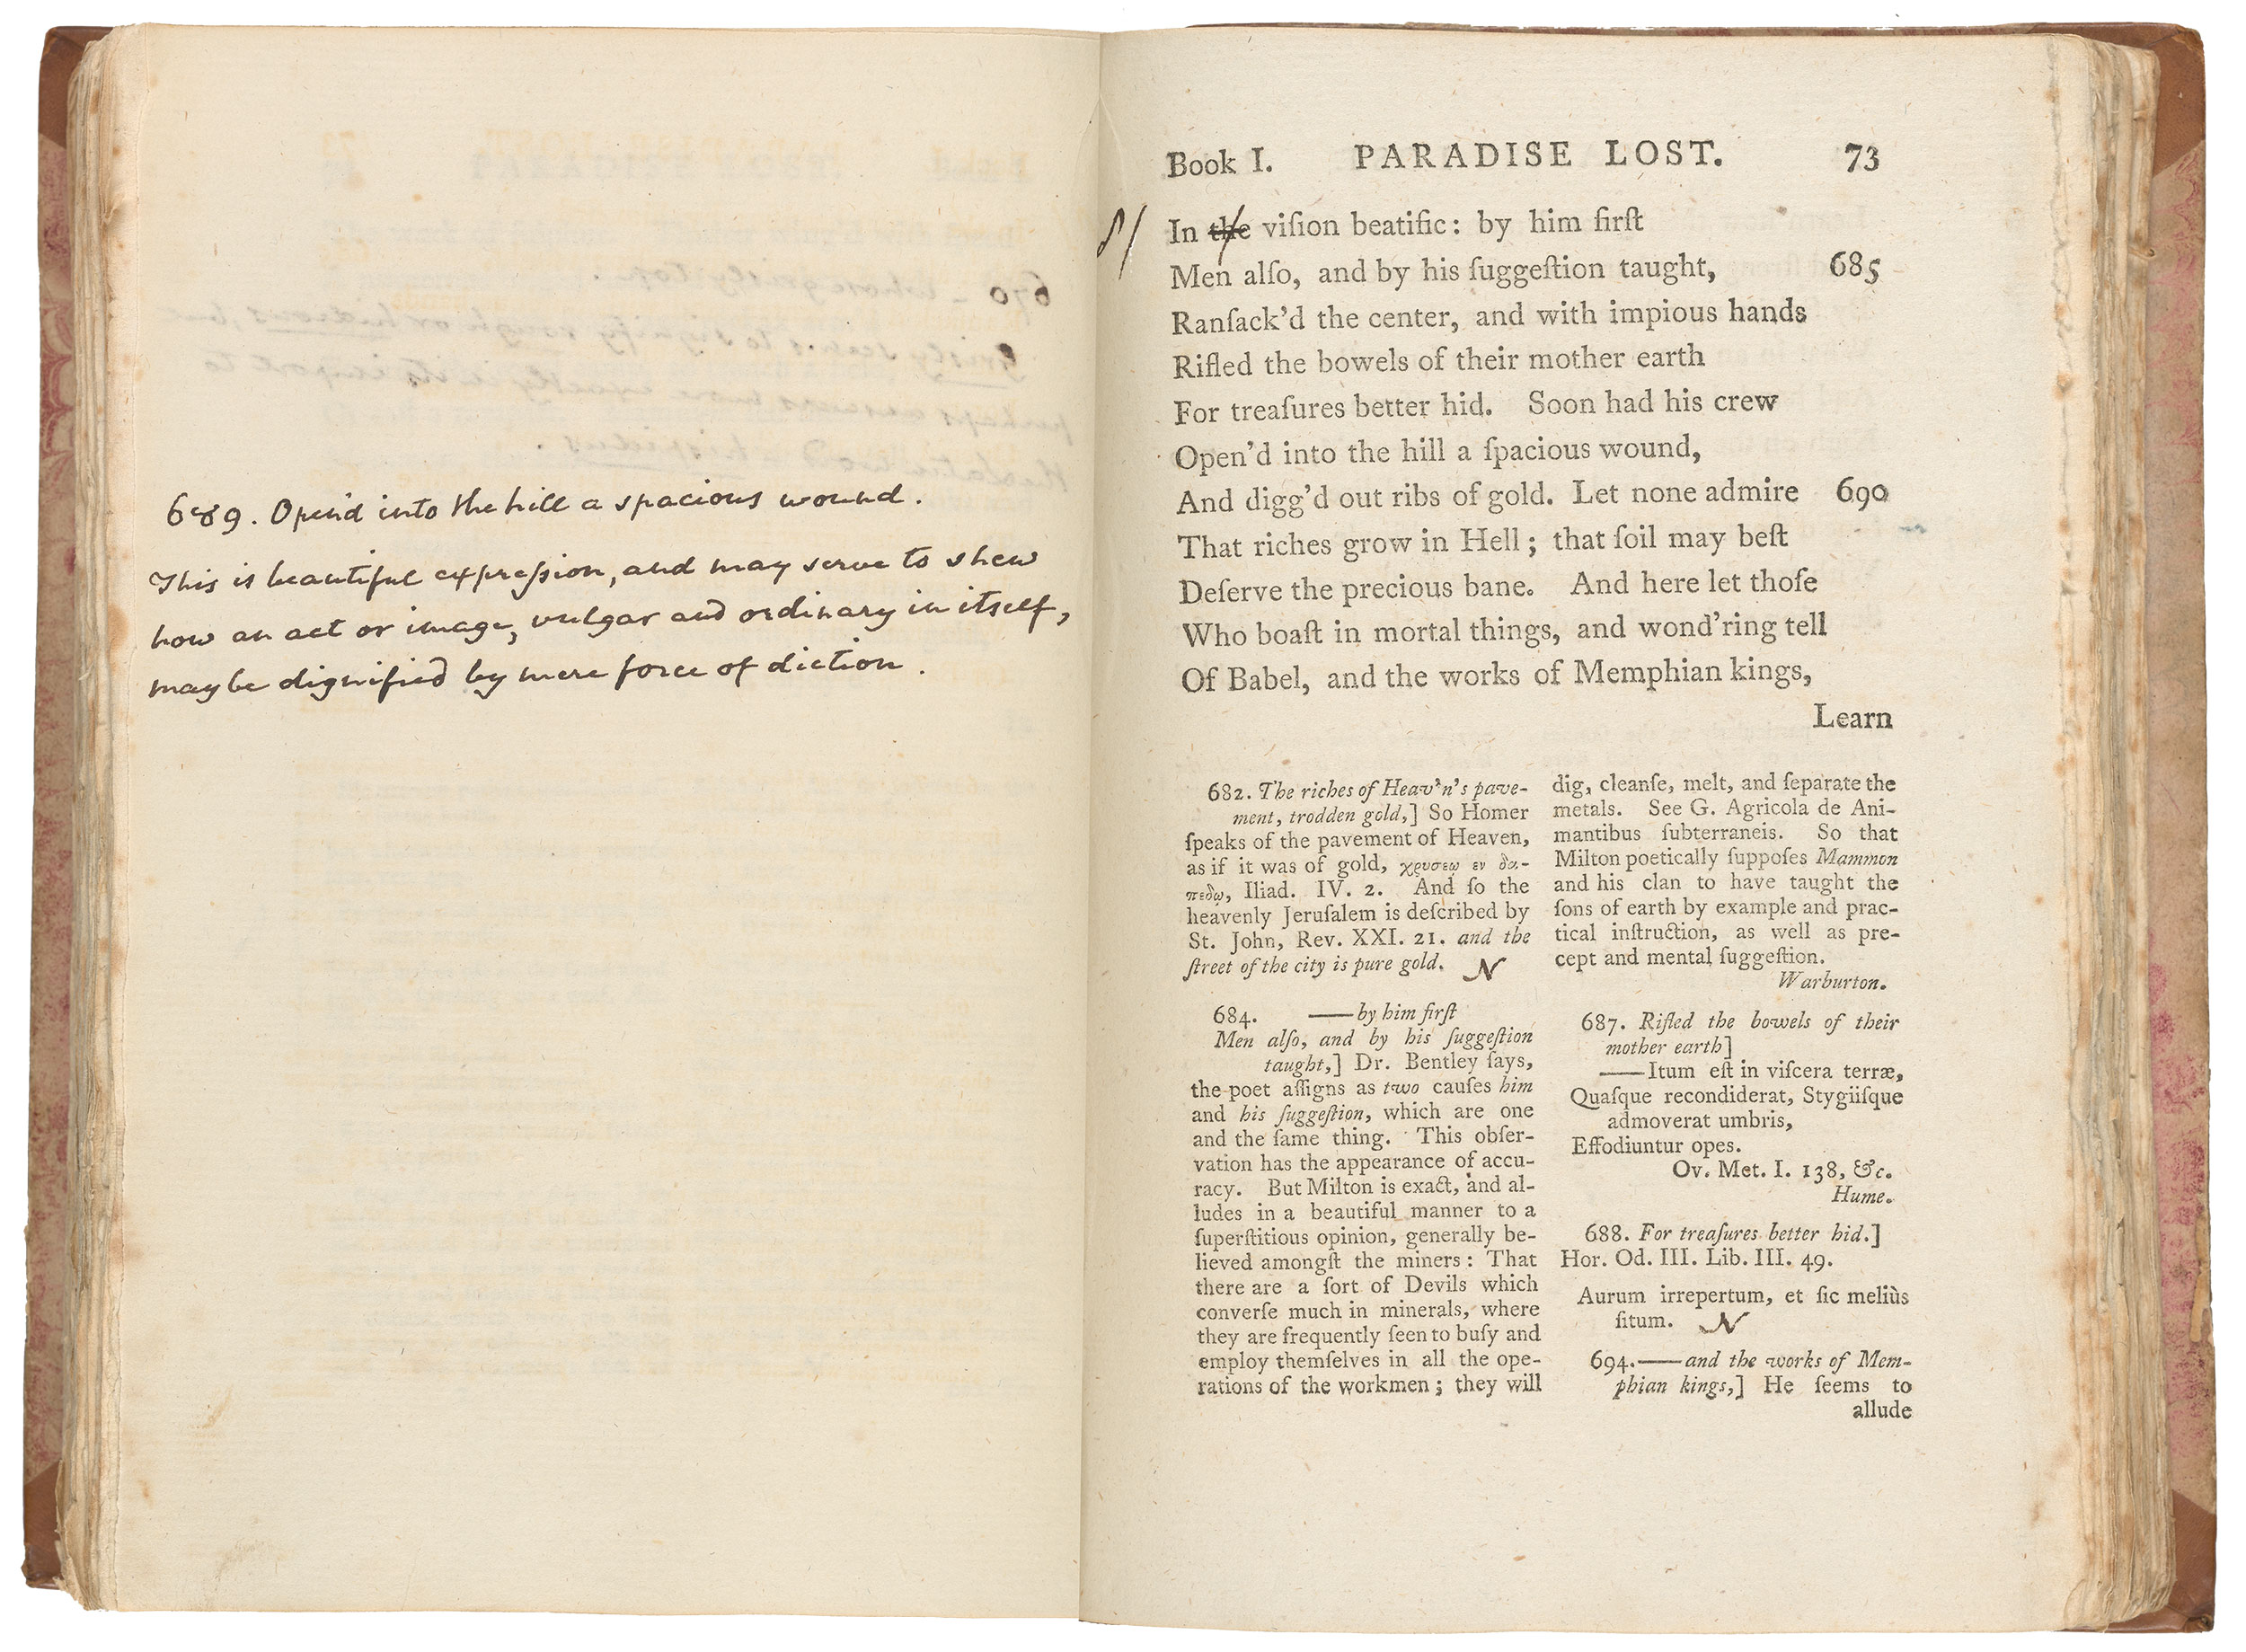 689. Open'd into the hill a spacious wound.
This is beautiful expreſsion, and may serve to shew
how an act or image, vulgar and ordinary in itself,
may be dignified by mere force of diction.
Book I. PARADISE LOST. 73
In the viſion beatific: by him firſt
Men alſo, and by his ſuggeſtion taught, 685
Ranſack'd the center, and with impious hands
Rifled the bowels of their mother earth
For treaſures better hid. Soon had his crew
Open'd into the hill a ſpacious wound,
And digg'd out ribs of gold. Let none admire 690
That riches grow in Hell; that ſoil may beſt
Deſerve the precious bane. And here let thoſe
Who boaſt in mortal things, and wond'ring tell
Of Babel, and the works of Memphian kings,
Learn
682. The riches of Heav'n's pave-
ment, trodden gold,] So Homer
ſpeaks of the pavement of Heaven,
as if it was of gold, χρυσεῳ εν δα-
πεδῳ, Iliad. IV. 2. And ſo the
heavenly Jeruſalem is deſcribed by
St. John, Rev. XXI. 21. and the
ſtreet of the city is pure gold. N
684. —— by him firſt
Men alſo, and by his ſuggeſtion
taught,] Dr. Bentley ſays,
the poet aſſigns as two cauſes him
and his ſuggeſtion, which are one
and the ſame thing. This obſer-
vation has the appearance of accu-
racy. But Milton is exact, and al-
ludes in a beautiful manner to a
ſuperſtitious opinion, generally be-
lieved amongſt the miners: That
there are a ſort of Devils which
converſe much in minerals, where
they are frequently ſeen to buſy and
employ themſelves in all the ope-
rations of the workmen; they will
dig, cleanſe, melt, and ſeparate the
metals. See G. Agricola de Ani-
mantibus ſubterraneis. So that
Milton poetically ſuppoſes Mammon
and his clan to have taught the
ſons of earth by example and prac-
tical inſtruction, as well as pre-
cept and mental ſuggeſtion.
Warburton.
687. Rifled the bowels of their
mother earth]
—— Itum eſt in viſcera terræ,
Quaſque recondiderat, Stygiiſque
admoverat umbris,
Effodiuntur opes.
Ov. Met. I. 138, &c.
Hume.
688. For treaſures better hid.]
Hor. Od. III. Lib. III. 49.
Aurum irrepertum, et ſic meliùs
ſitum. N
694. —— and the works of Mem-
phian kings,] He ſeems to
allude